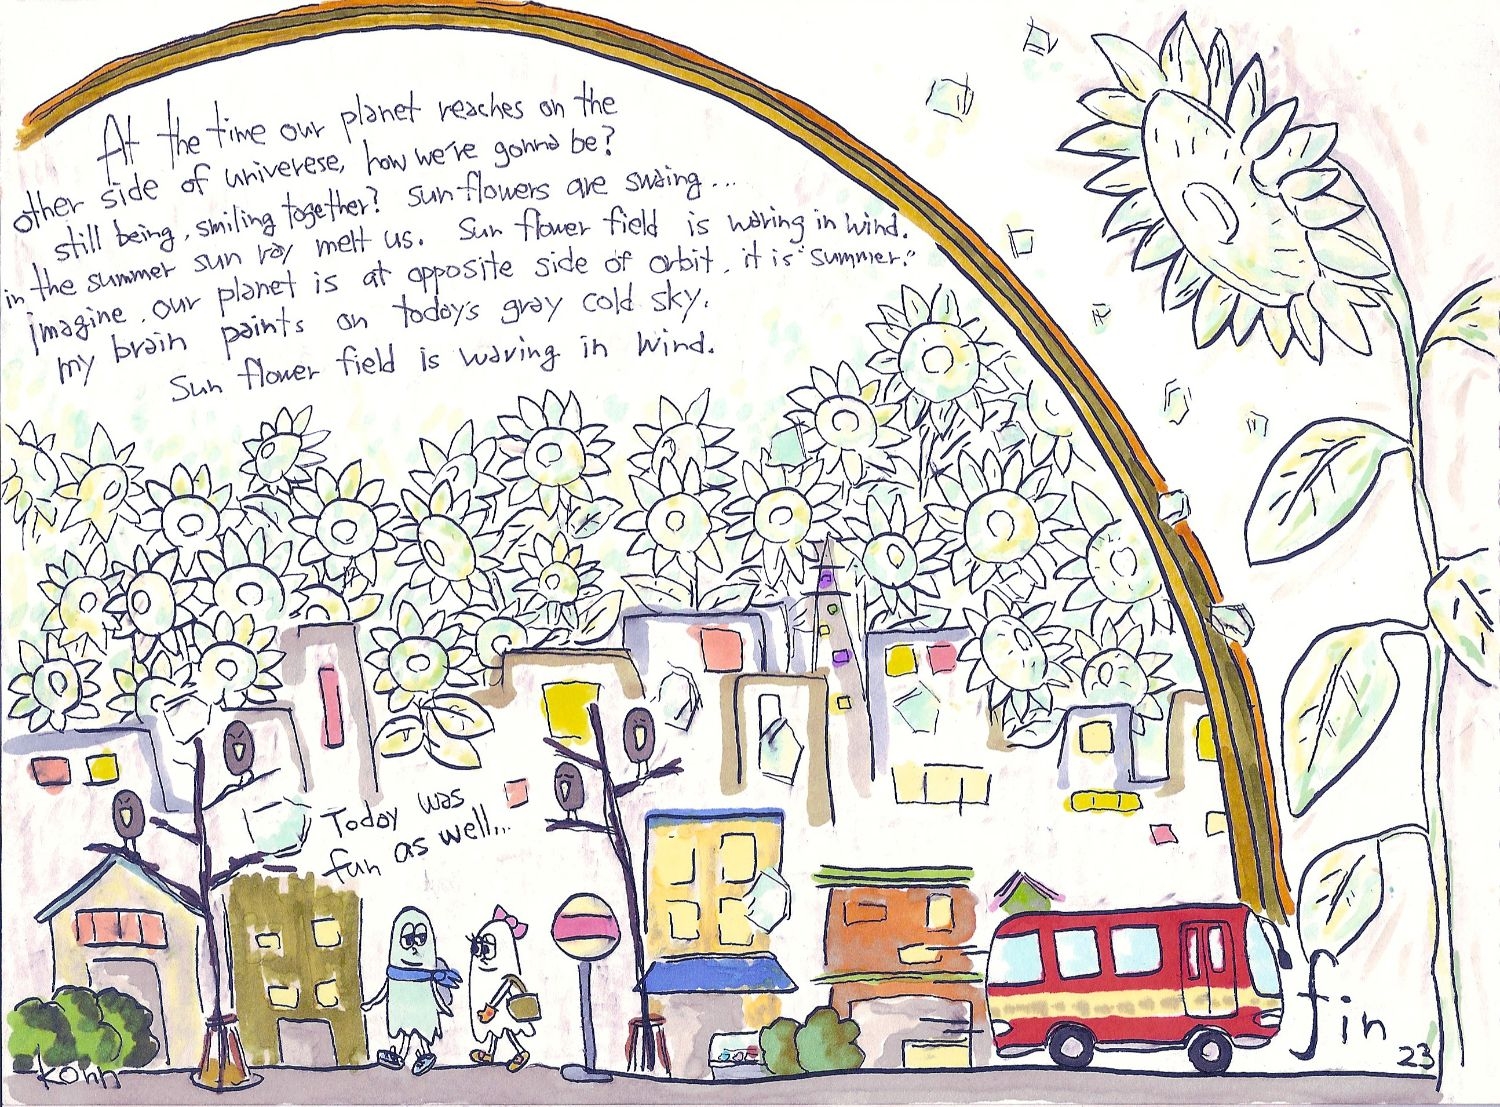 At the time our planet reaches on the
other side of univerese, how we're gonna be?
still being, smiling together? Sunflowers are swaing...
in the summer sun ray melt us. Sun flower field is waving in wind.
imagine, our planet is at opposite side of orbit, it is "summer."
my brain paints on today's gray cold sky.
Sun flower field is waving in wind.
Today was
fun as well...
fin
23
KOnn